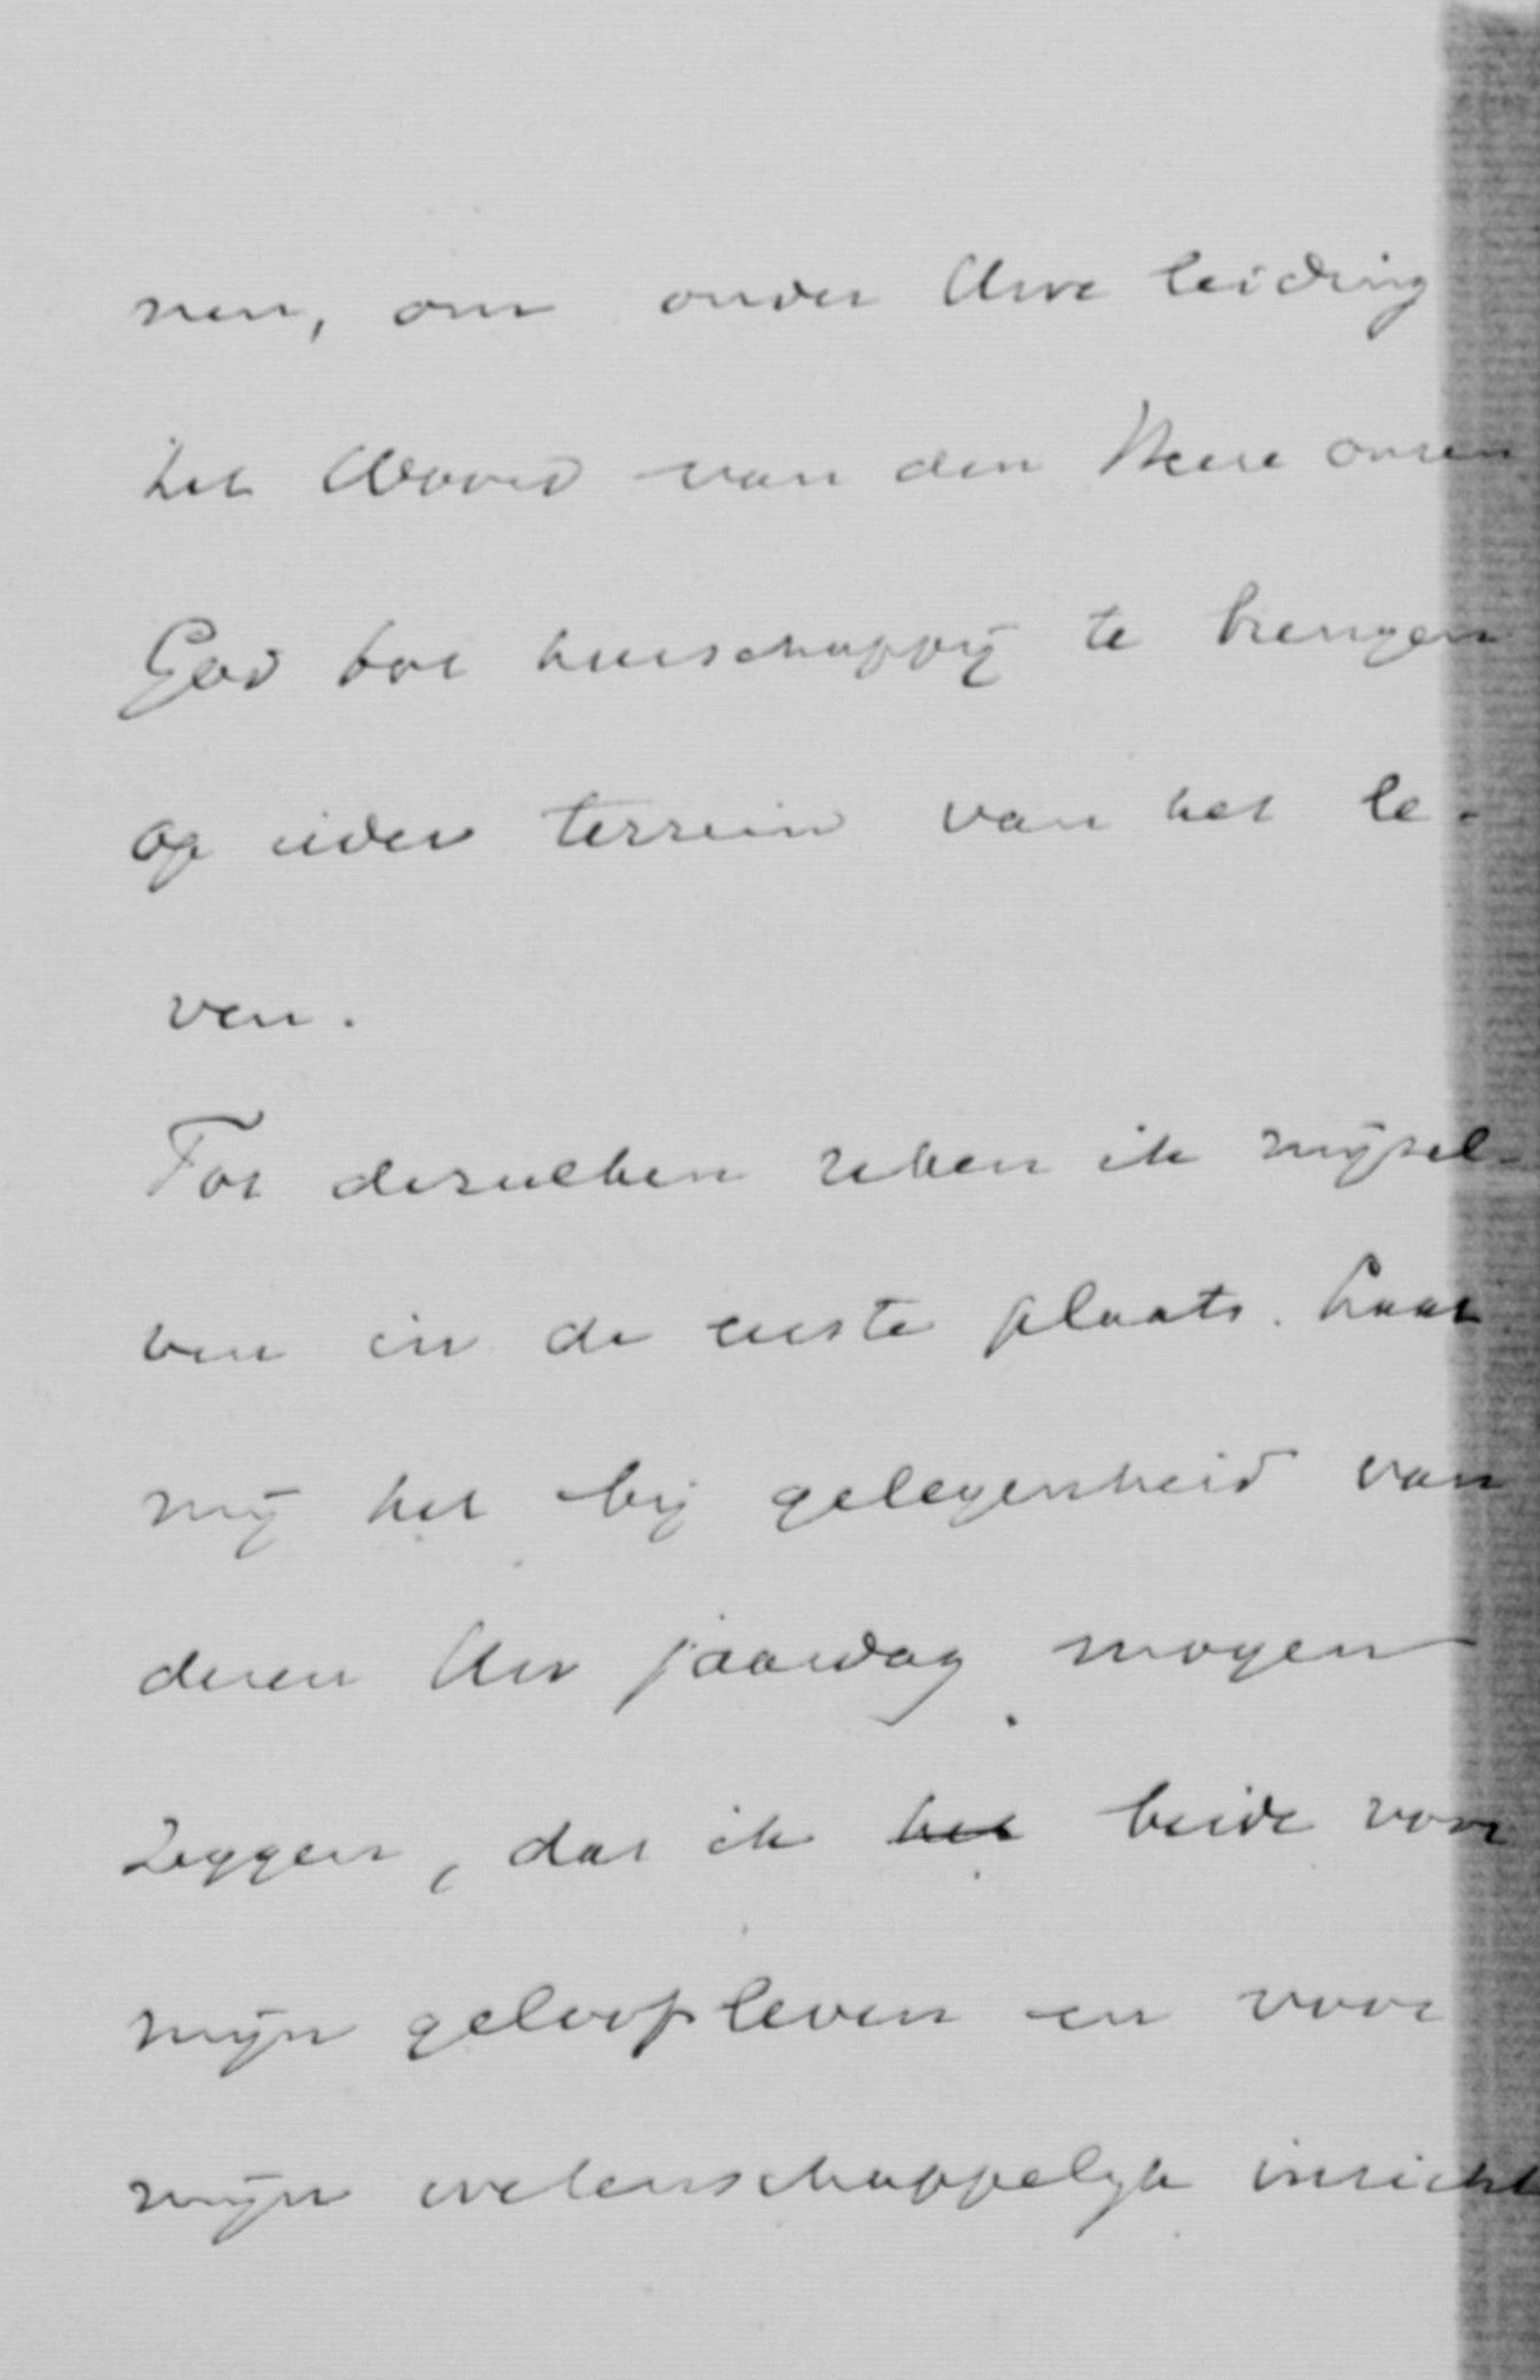 nen, om onder Uwe leiding
het Woord van den Heere onzen
God tot heerschappij te brengen
op ieder terrein van het le-
ven.
Tot dezulken reken ik mijzel-
ven in de eerste plaats. Laat
mij het bij gelegenheid van
dezen Uw jaardag mogen
zeggen, dat ik het beide voor
mijn geloofsleven en voor
mijn wetenschappelijk inzicht